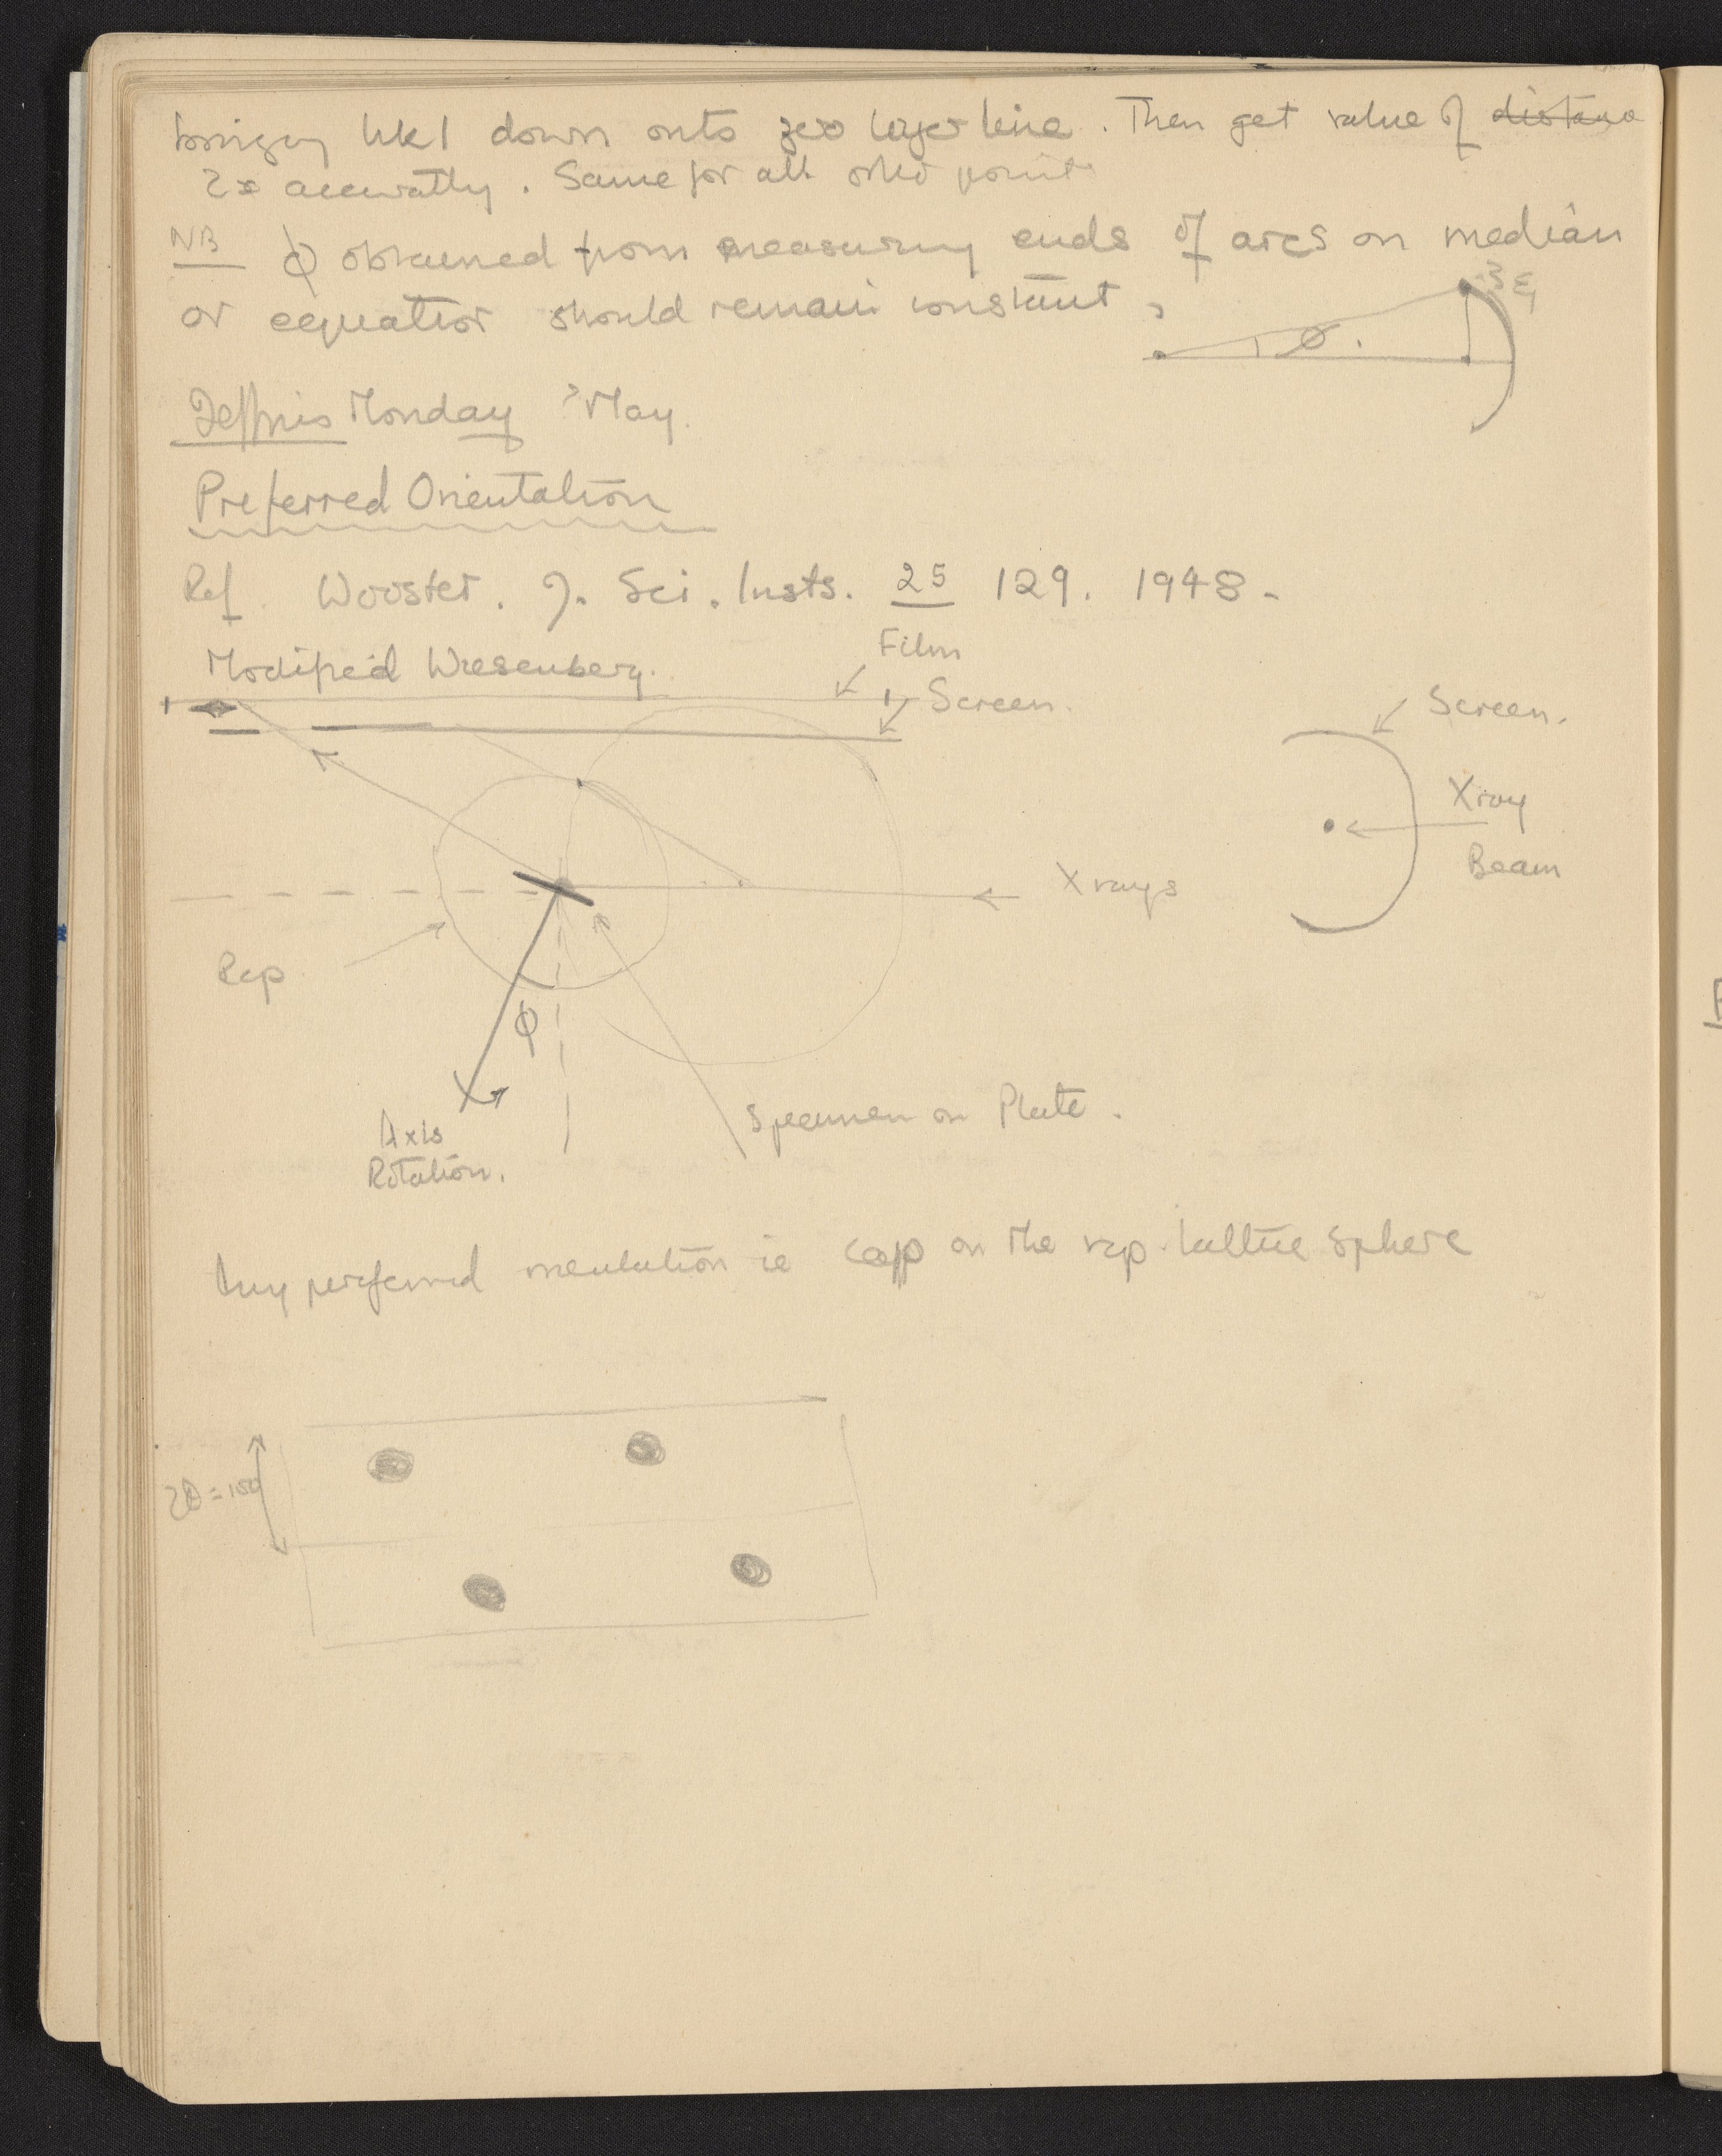 bringing hkl down onto zero layer line. Then get value of distance
2x accuratly. Same for all other points
NB ϕ obtained from measuring ends of arcs on median
or equatior should remain constant,
ξ
ϕ.
Monday ? May.
Preferred Orientation
Ref. Wooster. J. Sci. Insts. 25 129. 1948.
Film
Modified Wiesenberg.
Screen.
Screen.
Xray
Beam
X rays
Rep
ϕ
Specimen on Plate.
Axis
Rotation.
Any preferred orientation ie cap on the rep. lattice sphere
2θ =